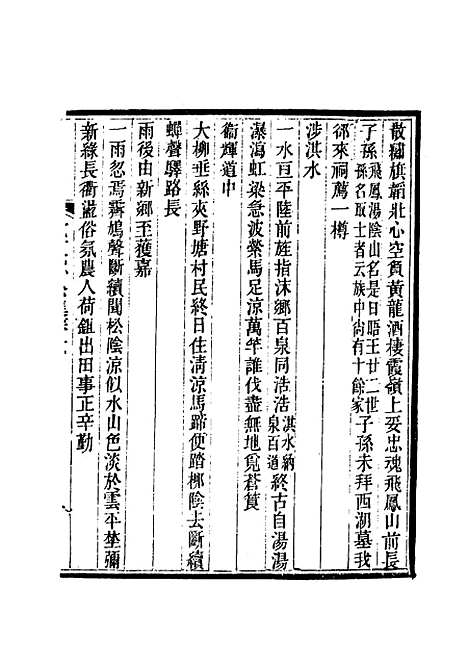 散繡旗韜壯心空負黃龍酒棲霞嶺上妥忠魂飛鳳山前長
子孫飛鳳湯陰山名是日晤王廿二世孫名取士者云族中尚有十餘家子孫未拜西湖墓我
徐來祠薦一樽
涉淇水
一水亘平陸前旌指沬鄉百泉同浩浩淇水納泉百道終古自湯湯
瀑瀉虹梁急波縈馬足涼萬竿誰伐盡無地覓蒼筤
衞輝道中
大柳垂絲夾野塘村民終日住清涼馬蹄便踏槨陰去斷續
蟬聲驛路長
雨後由新鄉至獲嘉
一雨忽焉霽鳩聲斷續聞松陰涼似水山色淡於雲平埜彌
新綠長衢滋俗氛農人荷鉏出田事正辛勤